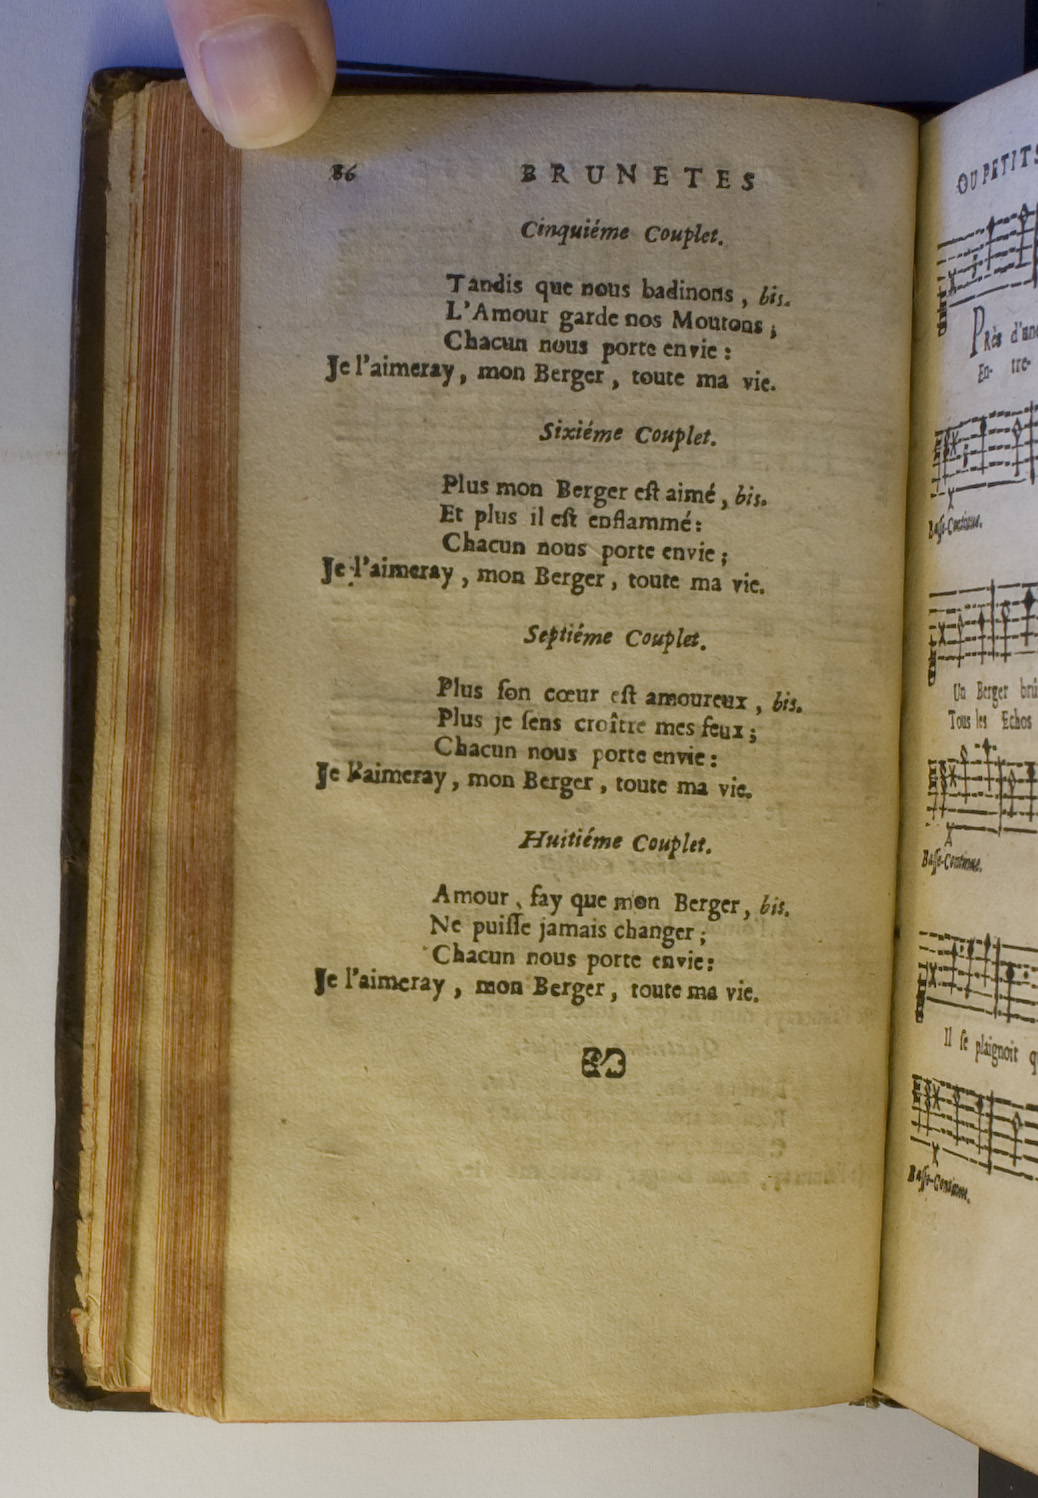 86 BRUNETES
Cinquiéme Couplet.
Tandis que nous badinons, bis.
L'Amour garde nos Moutons;
Chacun nous porte envie:
Je l'aimeray, mon Berger, toute ma vie.
Sixiéme Couplet.
Plus mon Berger est aimé, bis.
Et plus il est enflammé:
Chacun nous porte envie;
Je l'aimeray, mon Berger, toute ma vie.
Septiéme Couplet.
Plus ſon cœur est amoureux, bis.
Plus je ſens croître mes feux;
Chacun nous porte envie:
Je l'aimeray, mon Berger, toute ma vie.
Huitiéme Couplet.
Amour, fay que mon Berger, bis.
Ne puiſſe jamais changer;
Chacun nous porte envie:
Je l'aimeray, mon Berger, toute ma vie.
OU PETITS
PRès d'une
En- tre-
Baſſe-Continue.
Un Berger brû
Tous les Echos
Baſſe-Continue.
Il ſe plaignoit q
Baſſe-Continue.